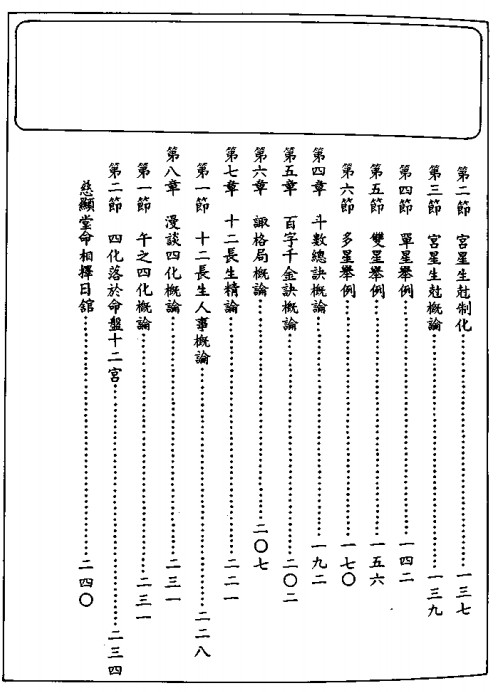 第二節　宮星生尅制化……一三七
第三節　宮星生尅概論……一三九
第四節　單星舉例……一四二
第五節　雙星舉例……一五六
第六節　多星舉例……一七〇
第四章　斗數總訣概論……一九二
第五章　百字千金訣概論……二〇二
第六章　諏格局概論……二〇七
第七章　十二長生精論……二二一
第一節　十二長生人事概論……二二八
第八章　漫談四化概論……二三一
第一節　午之四化概論……二三一
第二節　四化落於命盤十二宮……二三四
慈顯堂命相擇日舘……二四〇